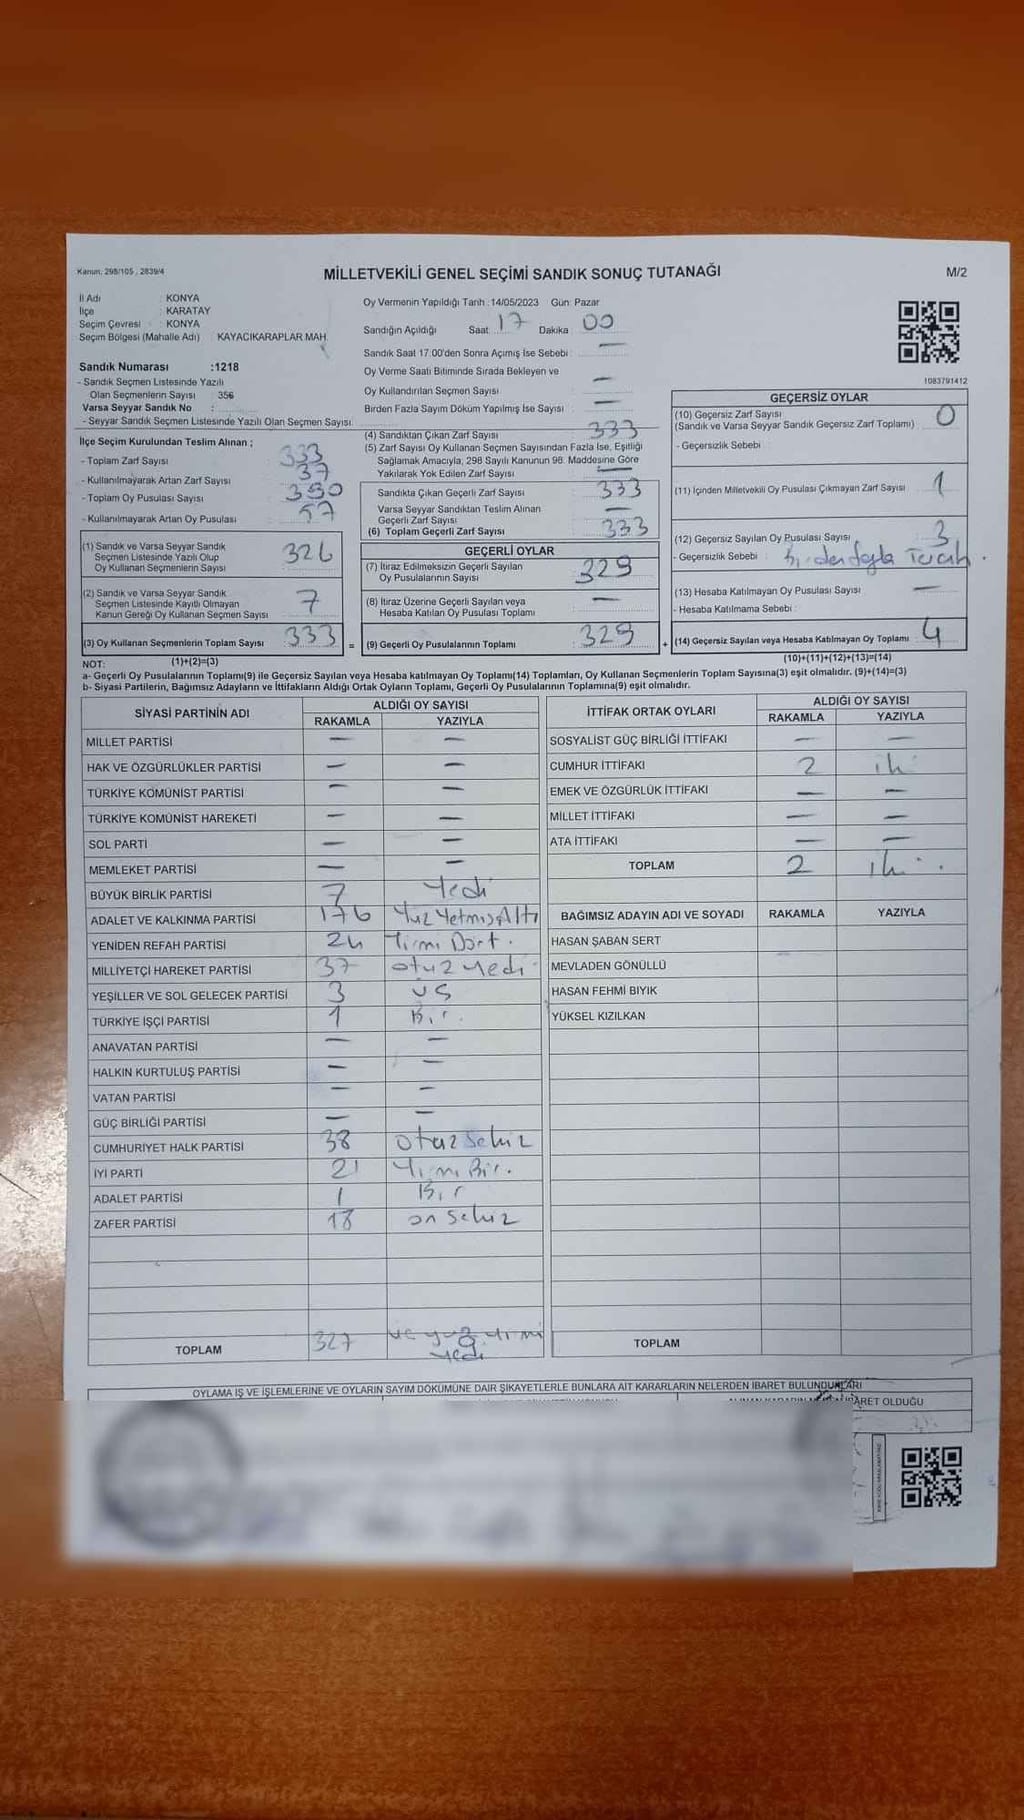 Kanun, 298/105 , 2839/4
MİLLETVEKİLİ GENEL SEÇİMİ SANDIK SONUÇ TUTANAĞI
M/2
İl Adı : KONYA
İlçe : KARATAY
Seçim Çevresi : KONYA
Seçim Bölgesi (Mahalle Adı) : KAYACIKARAPLAR MAH.
Sandık Numarası :1218
- Sandık Seçmen Listesinde Yazılı
Olan Seçmenlerin Sayısı : 356
Varsa Seyyar Sandık No :
- Seyyar Sandık Seçmen Listesinde Yazılı Olan Seçmen Sayısı:
İlçe Seçim Kurulundan Teslim Alınan ;
- Toplam Zarf Sayısı
- Kullanılmayarak Artan Zarf Sayısı 37
- Toplam Oy Pusulası Sayısı
- Kullanılmayarak Artan Oy Pusulası 57
(1) Sandık ve Varsa Seyyar Sandık
Seçmen Listesinde Yazılı Olup
Oy Kullanan Seçmenlerin Sayısı 326
(2) Sandık ve Varsa Seyyar Sandık
Seçmen Listesinde Kayıtlı Olmayan
Kanun Gereği Oy Kullanan Seçmen Sayısı 7
(3) Oy Kullanan Seçmenlerin Toplam Sayısı 333 =
Oy Vermenin Yapıldığı Tarih :14/05/2023 Gün: Pazar
Sandığın Açıldığı Saat: 17 Dakika : 00
Sandık Saat 17.00'den Sonra Açımış İse Sebebi : —
Oy Verme Saati Bitiminde Sırada Bekleyen ve
Oy Kullandırılan Seçmen Sayısı —
Birden Fazla Sayım Döküm Yapılmış İse Sayısı —
(4) Sandıktan Çıkan Zarf Sayısı 333
(5) Zarf Sayısı Oy Kullanan Seçmen Sayısından Fazla İse, Eşitliği
Sağlamak Amacıyla, 298 Sayılı Kanunun 98. Maddesine Göre
Yakılarak Yok Edilen Zarf Sayısı —
Sandıkta Çıkan Geçerli Zarf Sayısı 333
Varsa Seyyar Sandıktan Teslim Alınan
Geçerli Zarf Sayısı —
(6) Toplam Geçerli Zarf Sayısı 333
GEÇERLİ OYLAR
(7) İtiraz Edilmeksizin Geçerli Sayılan
Oy Pusulalarının Sayısı 329
(8) İtiraz Üzerine Geçerli Sayılan veya
Hesaba Katılan Oy Pusulası Toplamı —
(9) Geçerli Oy Pusulalarının Toplamı 329 +
1083791412
GEÇERSİZ OYLAR
(10) Geçersiz Zarf Sayısı 0
(Sandık ve Varsa Seyyar Sandık Geçersiz Zarf Toplamı)
- Geçersizlik Sebebi :
(11) İçinden Milletvekili Oy Pusulası Çıkmayan Zarf Sayısı 1
(12) Geçersiz Sayılan Oy Pusulası Sayısı 3
- Geçersizlik Sebebi :
(13) Hesaba Katılmayan Oy Pusulası Sayısı —
- Hesaba Katılmama Sebebi :
(14) Geçersiz Sayılan veya Hesaba Katılmayan Oy Toplamı 4
NOT: (1)+(2)=(3) (10)+(11)+(12)+(13)=(14)
a- Geçerli Oy Pusulalarının Toplamı(9) ile Geçersiz Sayılan veya Hesaba katılmayan Oy Toplamı(14) Toplamları, Oy Kullanan Seçmenlerin Toplam Sayısına(3) eşit olmalıdır. (9)+(14)=(3)
b- Siyasi Partilerin, Bağımsız Adayların ve İttifakların Aldığı Ortak Oyların Toplamı, Geçerli Oy Pusulalarının Toplamına(9) eşit olmalıdır.
SİYASİ PARTİNİN ADI ALDIĞI OY SAYISI
RAKAMLA YAZIYLA
MİLLET PARTİSİ — —
HAK VE ÖZGÜRLÜKLER PARTİSİ — —
TÜRKİYE KOMÜNİST PARTİSİ — —
TÜRKİYE KOMÜNİST HAREKETİ — —
SOL PARTİ — —
MEMLEKET PARTİSİ — —
BÜYÜK BİRLİK PARTİSİ 7 Yedi
ADALET VE KALKINMA PARTİSİ 176 Yüz Yetmiş Altı
YENİDEN REFAH PARTİSİ 24 Yirmi Dört.
MİLLİYETÇİ HAREKET PARTİSİ 37 otuz yedi
YEŞİLLER VE SOL GELECEK PARTİSİ 3 üç
TÜRKİYE İŞÇİ PARTİSİ 1 Bir.
ANAVATAN PARTİSİ — —
HALKIN KURTULUŞ PARTİSİ — —
VATAN PARTİSİ — —
GÜÇ BİRLİĞİ PARTİSİ — —
CUMHURİYET HALK PARTİSİ 38 otuz sekiz
İYİ PARTİ 21 Yirmi Bir.
ADALET PARTİSİ 1 Bir
ZAFER PARTİSİ 18 on sekiz
TOPLAM 327 üç yüz yirmi
yedi
İTTİFAK ORTAK OYLARI ALDIĞI OY SAYISI
RAKAMLA YAZIYLA
SOSYALİST GÜÇ BİRLİĞİ İTTİFAKI — —
CUMHUR İTTİFAKI 2 iki
EMEK VE ÖZGÜRLÜK İTTİFAKI — —
MİLLET İTTİFAKI — —
ATA İTTİFAKI — —
TOPLAM 2 iki.
BAĞIMSIZ ADAYIN ADI VE SOYADI RAKAMLA YAZIYLA
HASAN ŞABAN SERT
MEVLADEN GÖNÜLLÜ
HASAN FEHMİ BIYIK
YÜKSEL KIZILKAN
TOPLAM
OYLAMA İŞ VE İŞLEMLERİNE VE OYLARIN SAYIM DÖKÜMÜNE DAİR ŞİKAYETLERLE BUNLARA AİT KARARLARIN NELERDEN İBARET BULUNDUKLARI
OLDUĞU